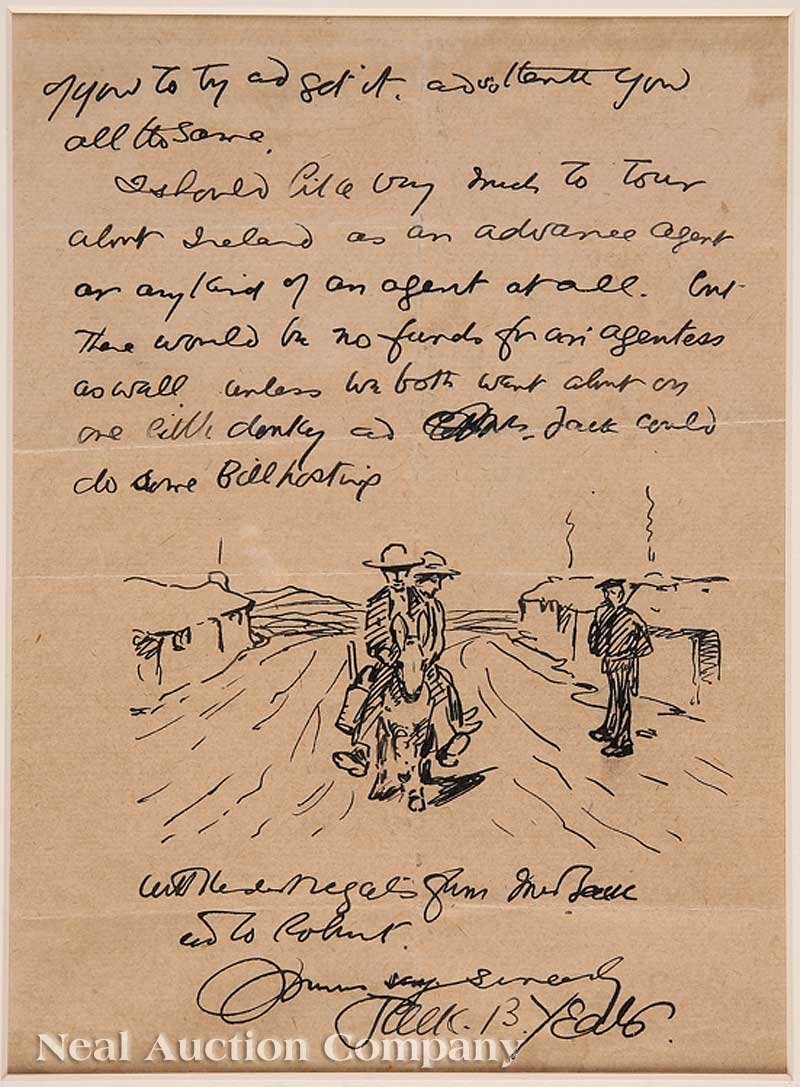 of you to try ad get it. ad so thank you
all the same.
I should like very much to tour
about Ireland as an advance agent
or any kind of an agent at all. but
there would be no funds for an agentess
as well unless we both went about on
one little donkey ad Jack could
do some Bill posting
with kindest regards from Mrs Jack
ad to Robert.
Yours very sincerely
Jack. B. Yeats.
Neal Auction Company